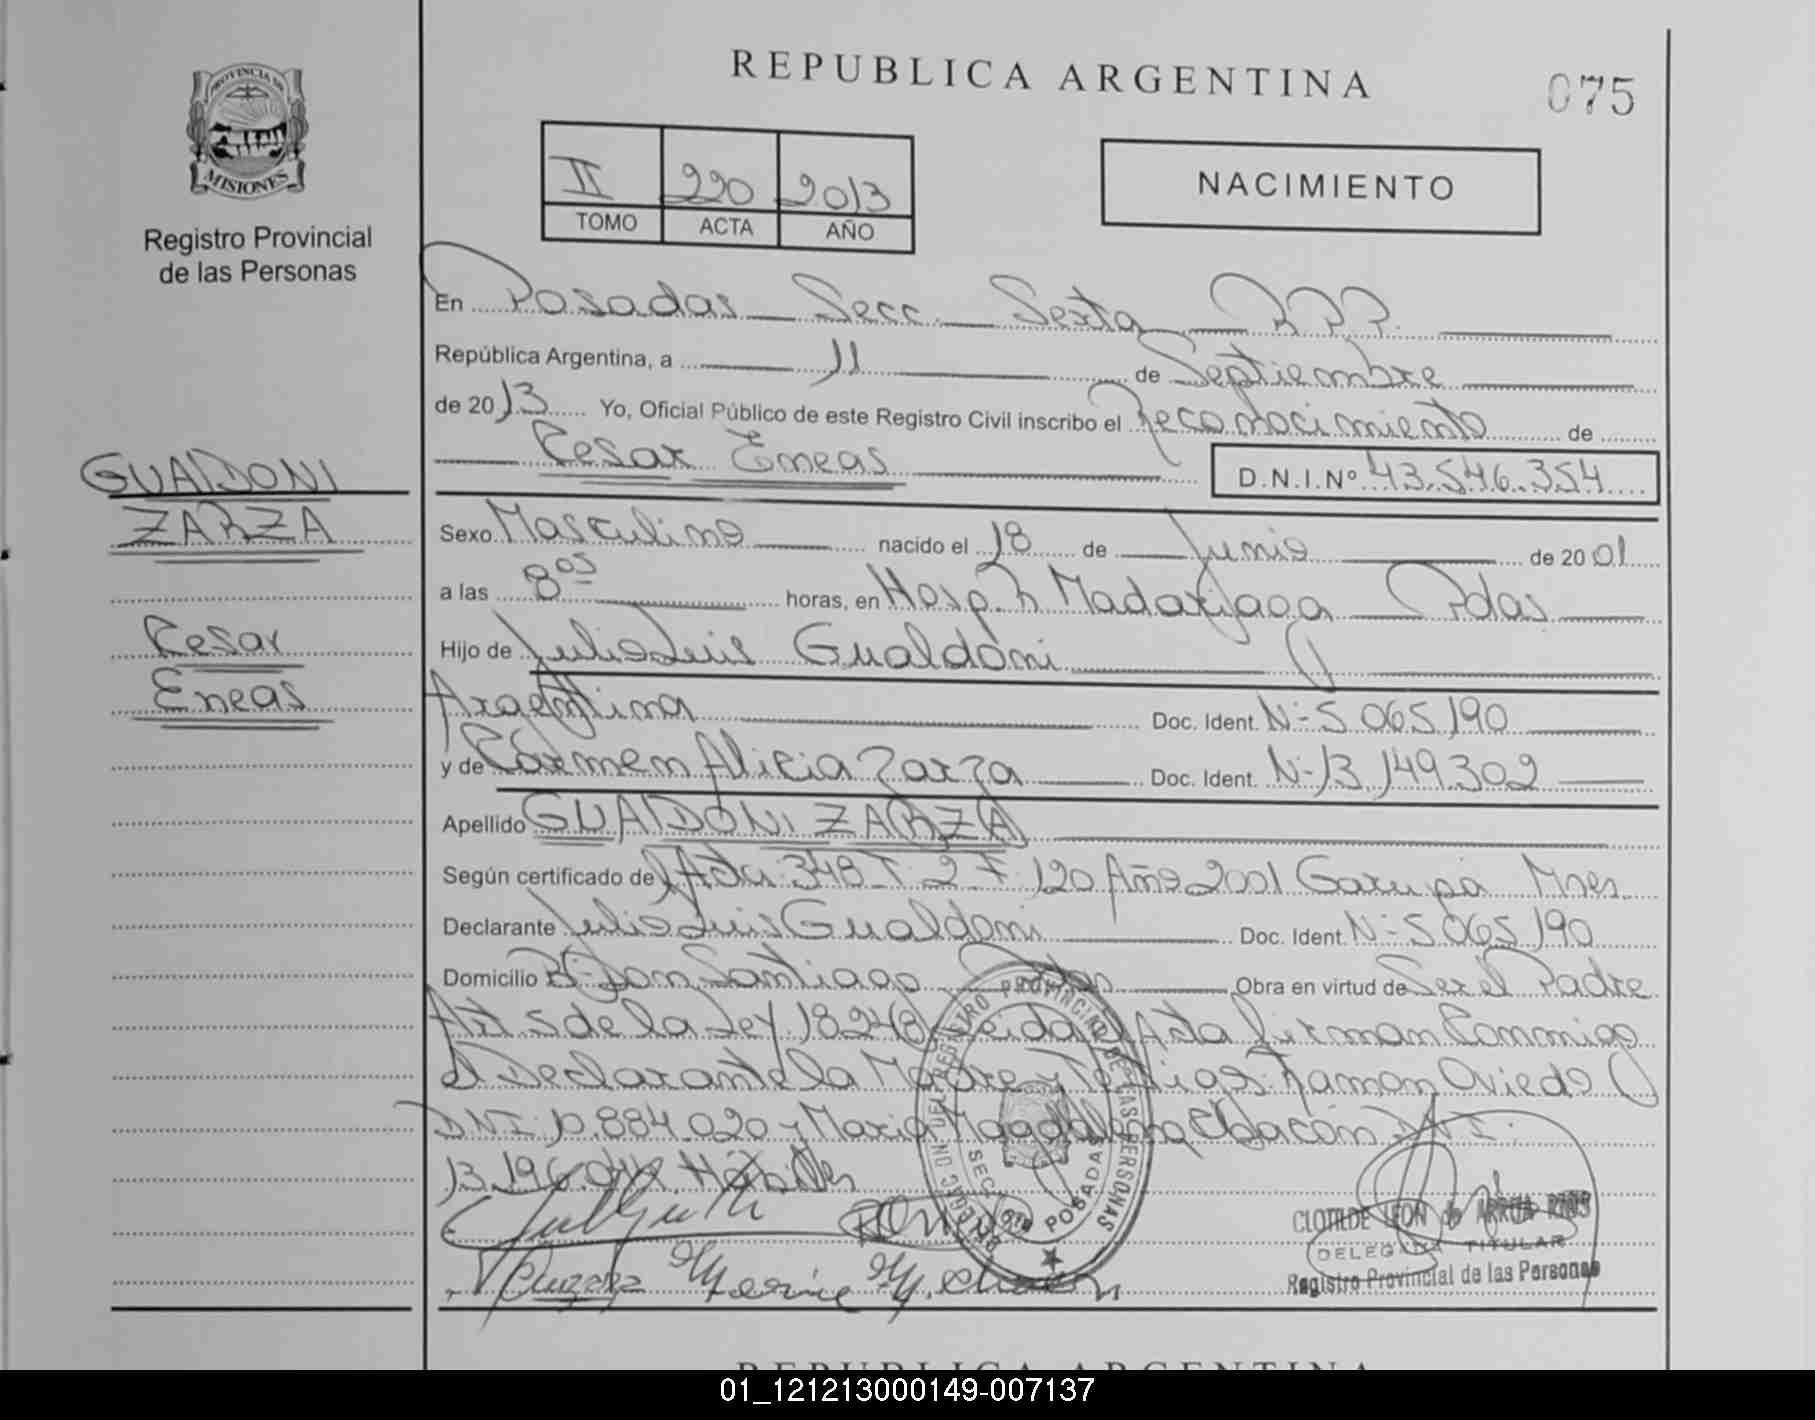 REPUBLICA ARGENTINA
075
PROVINCIA DE
MISIONES
Registro Provincial
de las Personas
II 220 2013
TOMO ACTA AÑO
NACIMIENTO
En Posadas Secc. Sexta R.P.P.
República Argentina, a 11 de Septiembre
de 2013 Yo, Oficial Público de este Registro Civil inscribo el Reconocimiento de
Cesar Eneas D.N.I.Nº 43.546.354
GUALDONI
ZARZA
Cesar
Eneas
Sexo Masculino nacido el 18 de Junio de 2001
a las 8 05 horas, en Hosp. R Madariaga Pdas
Hijo de Julio Luis Gualdoni
Argentina Doc. Ident. Nº 5.065.190
y de Carmen Alicia Zarza Doc. Ident. Nº 13.149.302
Apellido GUALDONI ZARZA
Según certificado de Acta 348 T 2 F 120 Año 2001 Garupá Mnes.
Declarante Julio Luis Gualdoni Doc. Ident. Nº 5.065.190
Domicilio Bº Don Santiago Pdas Obra en virtud de Ser el Padre
Art 5 de la Ley 18248 Leida el Acta firman Conmigo
el Declarante la Madre y Testigos: Ramon Oviedo
DNI 10.884.020 y Maria Magdalena Chacón D.N.I.
13.196.
REGISTRO PROVINCIAL DE LAS PERSONAS
SECC. 6ta POSADAS
CLOTILDE LEON de ARRUA RIOS
DELEGADA TITULAR
Registro Provincial de las Personas
REPUBLICA ARGENTINA
01_121213000149-007137